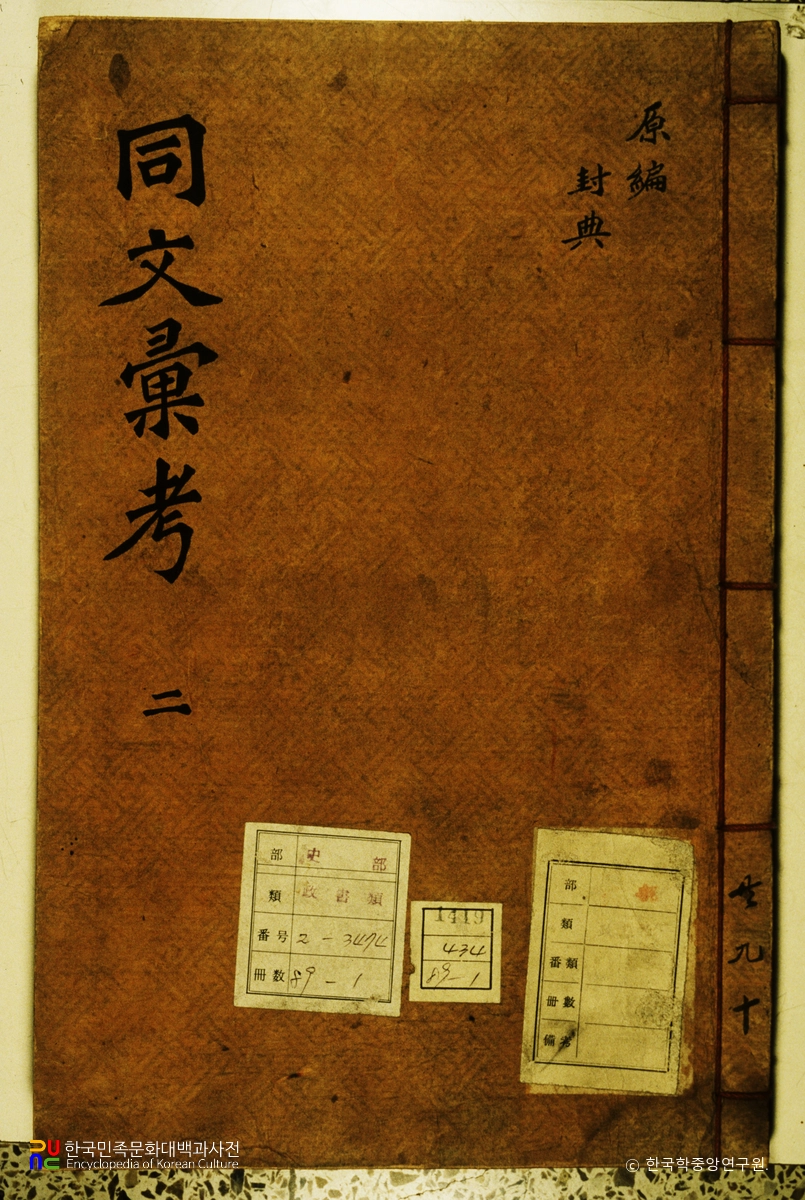 原編
封典
同文彙考 二
部 史 部
類 政書類
番号 2-3474
冊数 89-1
1419
434
89-1
部
類
番類
冊數
備考
共九十
한국민족문화대백과사전
Encyclopedia of Korean Culture
ⓒ 한국학중앙연구원